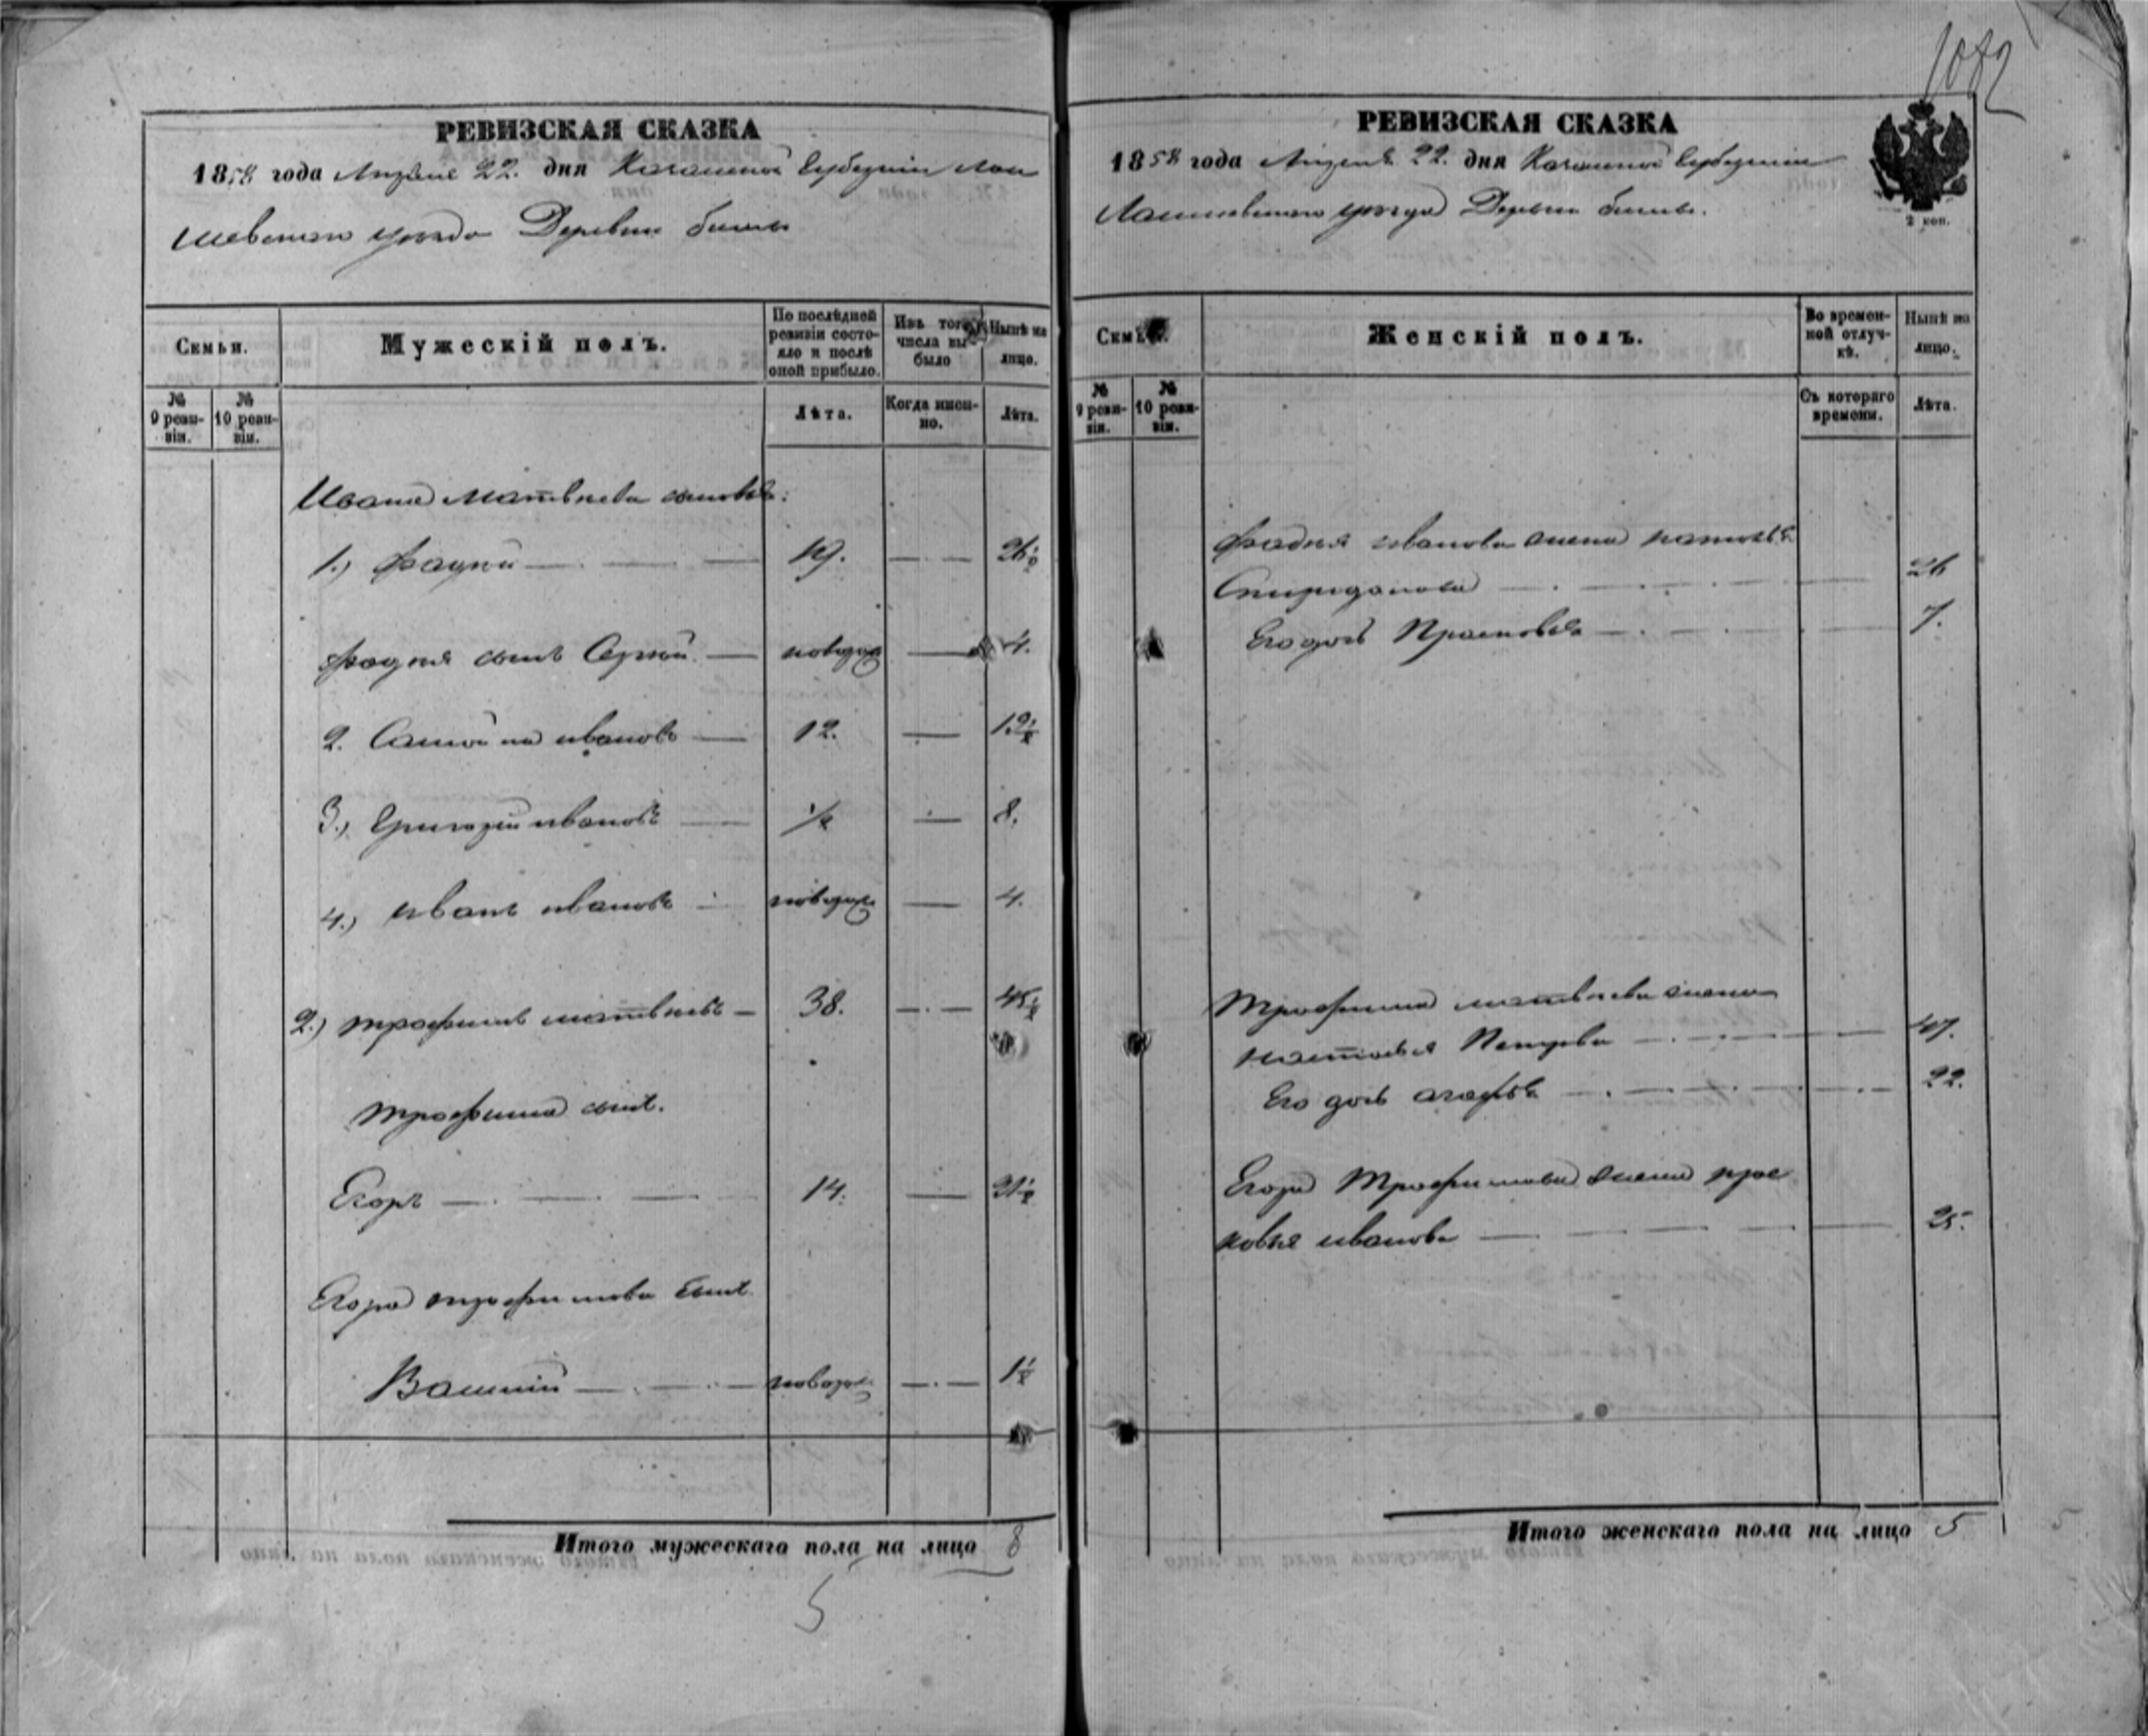 1082
РЕВИЗСКАЯ СКАЗКА
1858 года Апреля 22. дня Казанской Губернии Лаи
шевскаго уезда Деревни
Семьи.
Мужескій полъ.
По послѣдней ревизіи состояло и послѣ оной прибыло.
Изъ того числа выбыло
Нынѣ на лицо.
№ 9 ревизіи.
№ 10 ревизіи.
Лѣта.
Когда именно.
Лѣта.
Ивана Матвѣева сыновья:
1.) Фадѣй 19. 26½
Фадѣя сынъ Сергѣй новорож 4.
2. Самойла Ивановъ 12. 19½
3.) Григорій Ивановъ ½ 8.
4.) Иванъ Ивановъ новорож 4.
2.) Трофимъ Матвѣевъ 38. 45½
Трофима сынъ.
Егоръ 14. 21½
Егора Трофимова сынъ
новорож 1½
Итого мужескаго пола на лицо 8
5
РЕВИЗСКАЯ СКАЗКА
1858 года Апреля 22. дня Казанской Губерніи
Лаишевскаго уезда Деревни
2 коп.
Семьи.
Женскій полъ.
Во временной отлучкѣ.
Нынѣ на лицо.
№ 9 ревизіи.
№ 10 ревизіи.
Съ котораго времени.
Лѣта.
Фадѣя Иванова жена
Спиридонова 26
Его дочь Прасковья 7.
Трофима Матвѣева жена
Настасья Петрова 47.
Его дочь Агафья 22.
Егора Трофимова жена Прас
ковья Иванова 25.
Итого женскаго пола на лицо 5